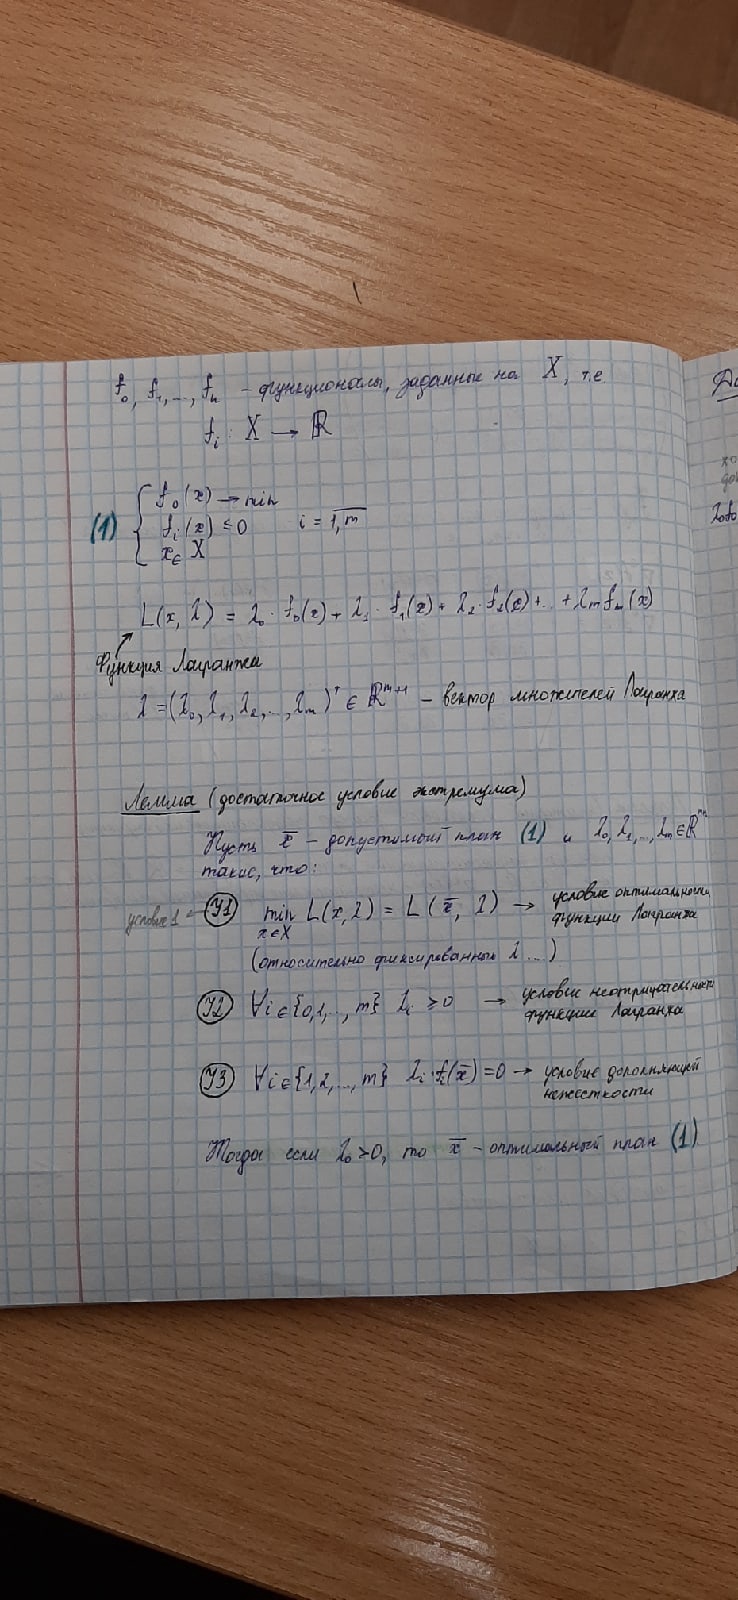 f₀, f₁, ..., fₙ – функционалы, заданные на X, т.е
fᵢ : X → ℝ
(1) { f₀(x) → min
fᵢ(x) ≤ 0 i = \overline{1,m}
x ∈ X
L(x, λ) = λ₀ · f₀(x) + λ₁ · f₁(x) + λ₂ · f₂(x) + ... + λₘ fₘ(x)
Функция Лагранжа
λ = (λ₀, λ₁, λ₂, ..., λₘ)ᵀ ∈ ℝᵐ⁺¹ – вектор множителей Лагранжа
Лемма (достаточное условие экстремума)
Пусть x̅ – допустимый план (1) и λ₀, λ₁, ..., λₘ ∈ ℝ
такие, что:
условие 1 ← У1 min L(x, λ) = L(x̅, λ) → условие оптимальности
x∈X функции Лагранжа
(относительно фиксированный λ ...)
У2 ∀i ∈ {0,1,..., m} λᵢ ≥ 0 → условие неотрицательности
функции Лагранжа
У3 ∀i ∈ {1,2,..., m} λᵢ · fᵢ(x̅) = 0 → условие дополняющей
нежесткости
Тогда если λ₀ > 0, то x̅ – оптимальный план (1)